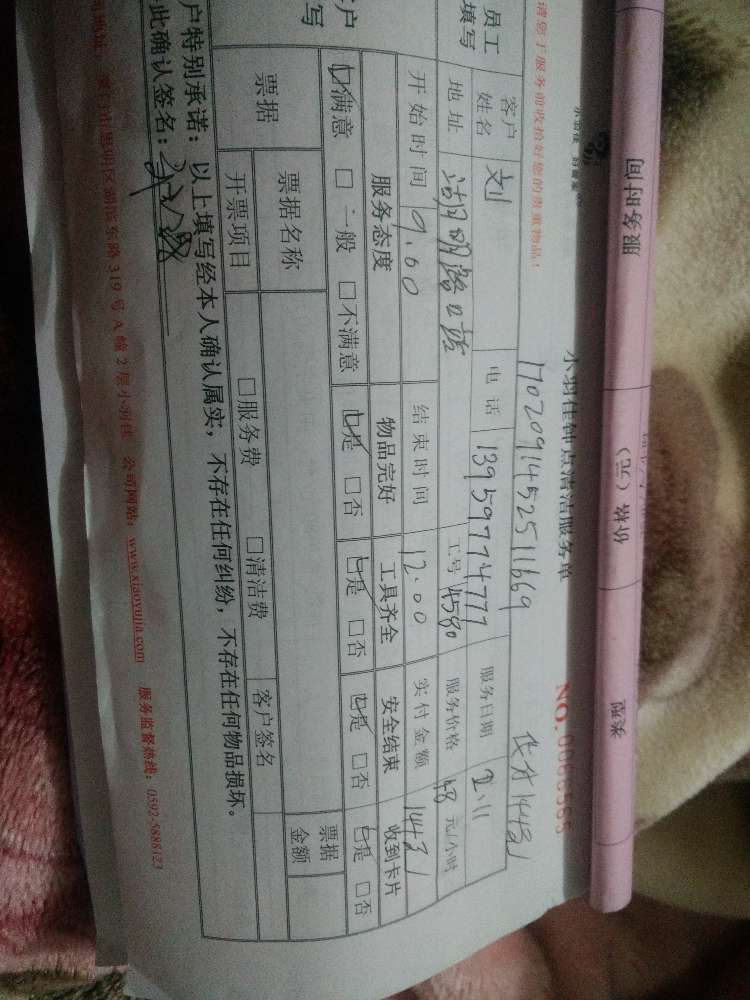 服务时间 价格（元） 来源
小羽佳钟点清洁服务单
NO.
请您于服务前收拾好您的贵重物品！
员工填写
客户姓名 刘 电话 13959774777 服务日期 2.11
地址 湖明路 工号 4580 服务价格 48 元/小时
开始时间 9.00 结束时间 12.00 实付金额 144元
服务态度 物品完好 工具齐全 安全结束 收到卡片
☑满意 □一般 □不满意 ☑是 □否 ☑是 □否 ☑是 □否 ☑是 □否
票据 票据名称 票据金额
开票项目 □服务费 □清洁费 客户签名
户特别承诺：以上填写经本人确认属实，不存在任何纠纷，不存在任何物品损坏。
此确认签名：
思明区湖滨东路319号A幢2层小羽佳 公司网站：www.xiaoyujia.com 服务监督热线：0592-5888123